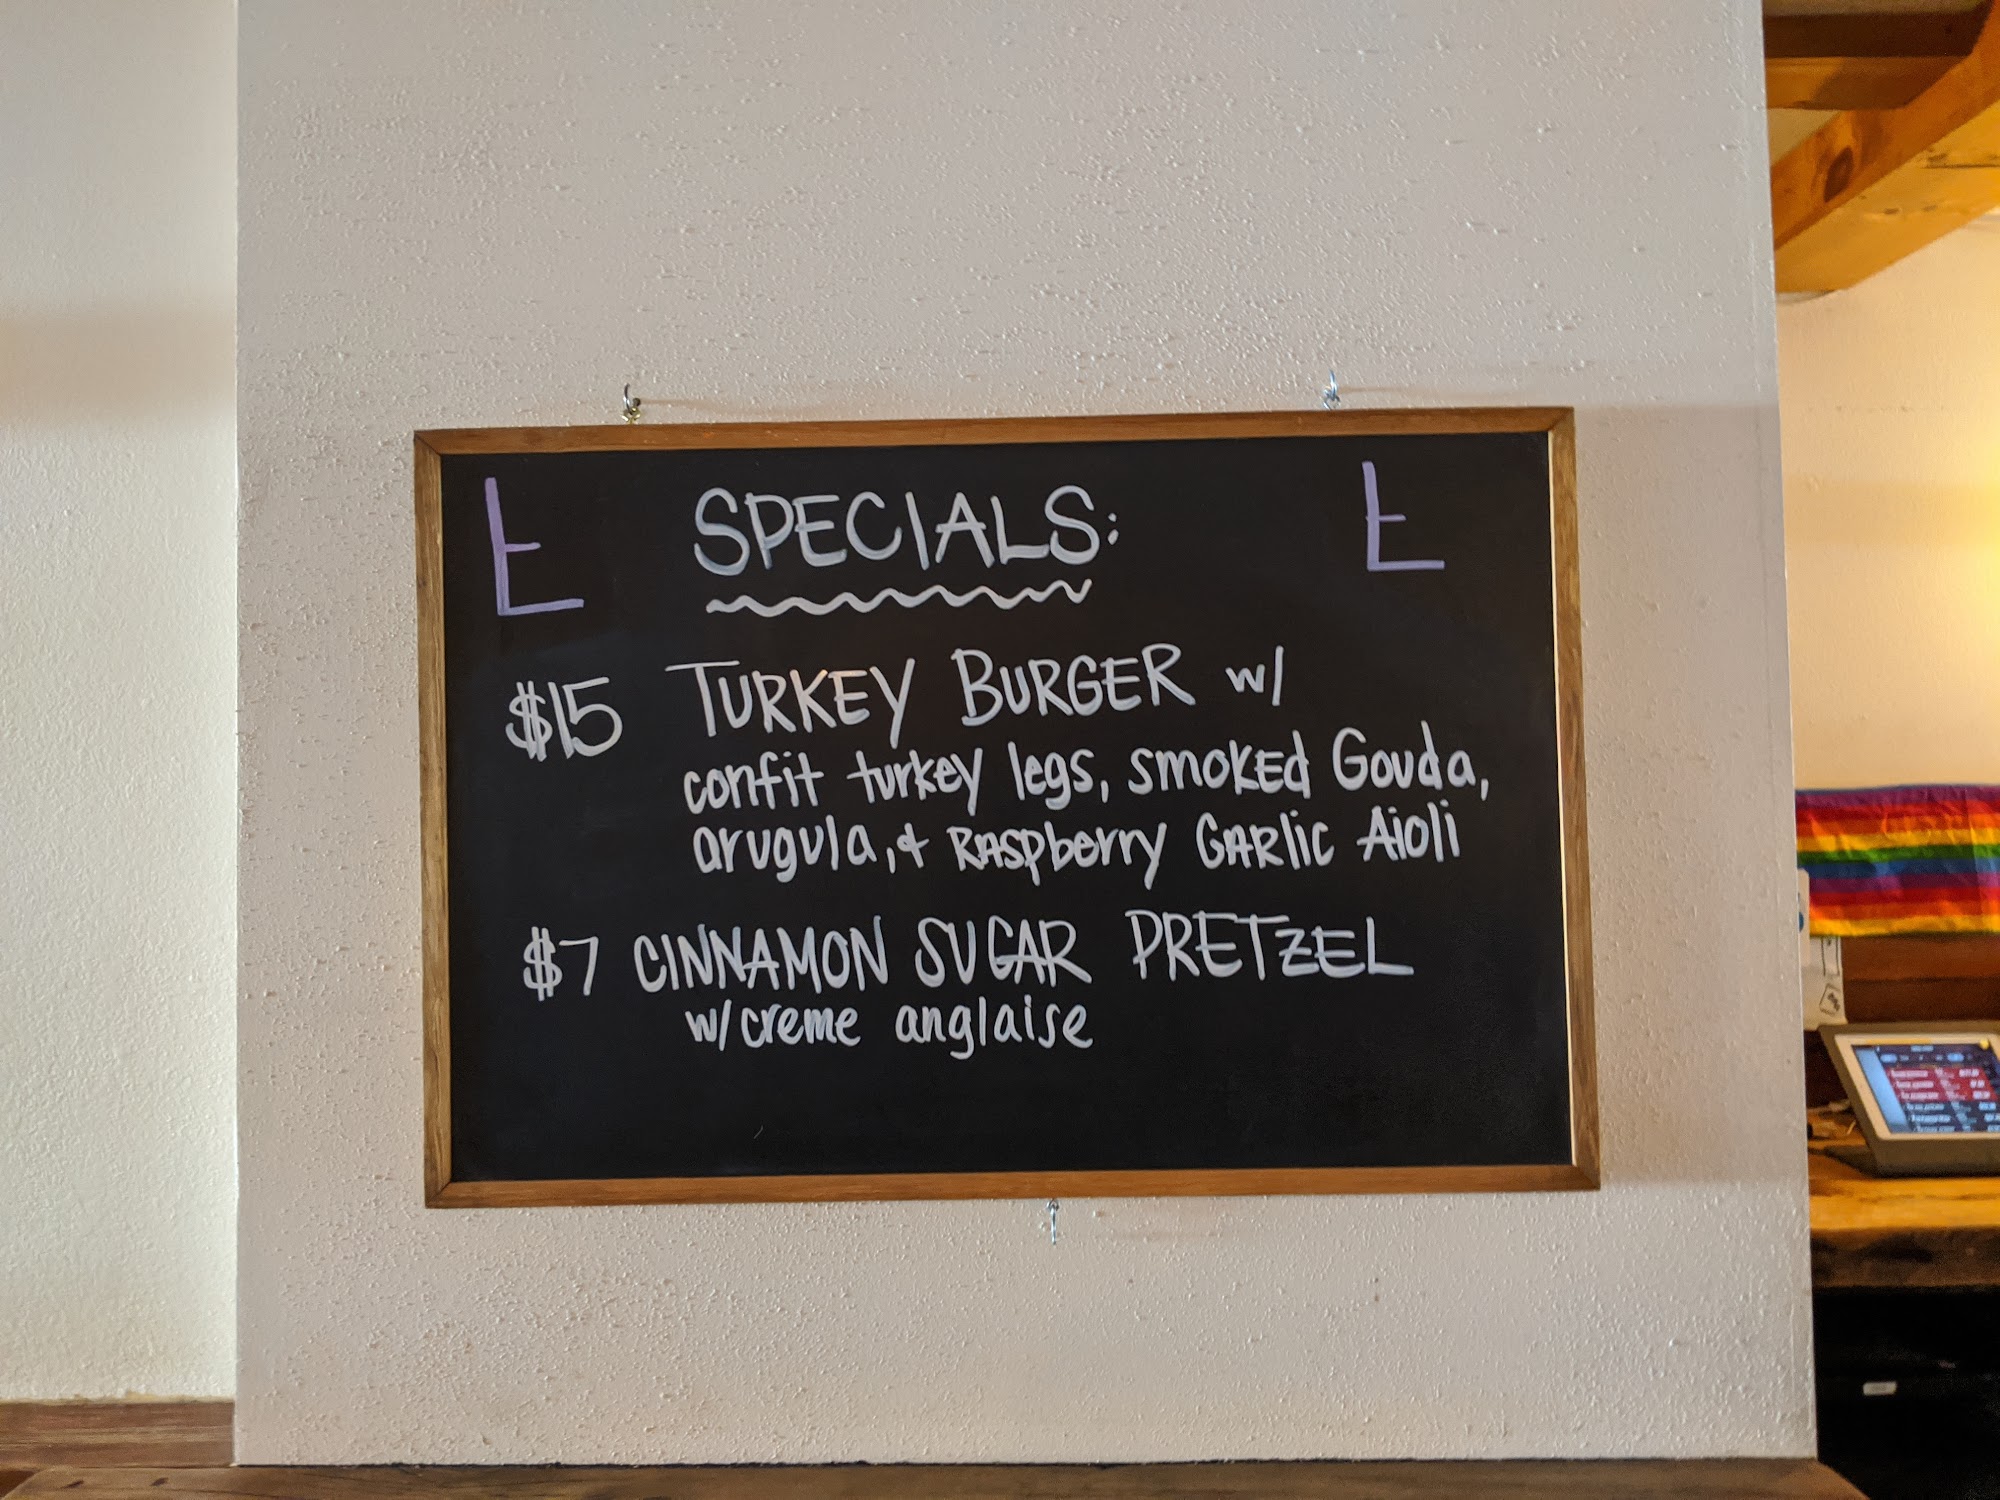 SPECIALS:
$15 TURKEY BURGER w/
confit turkey legs, smoked Gouda,
arugula, & Raspberry Garlic Aioli
$7 CINNAMON SUGAR PRETZEL
w/creme anglaise